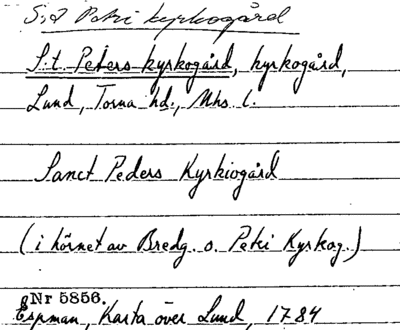 S:t Petri kyrkogård
S:t. Peters kyrkogård, kyrkogård,
Lund, Torna hd., Mhs l.
Sanct Peders Kyrkiogård
(i hörnet av Bredg. o. Petri Kyrkog.)
Nr 5856.
Espman, Karta över Lund, 1784